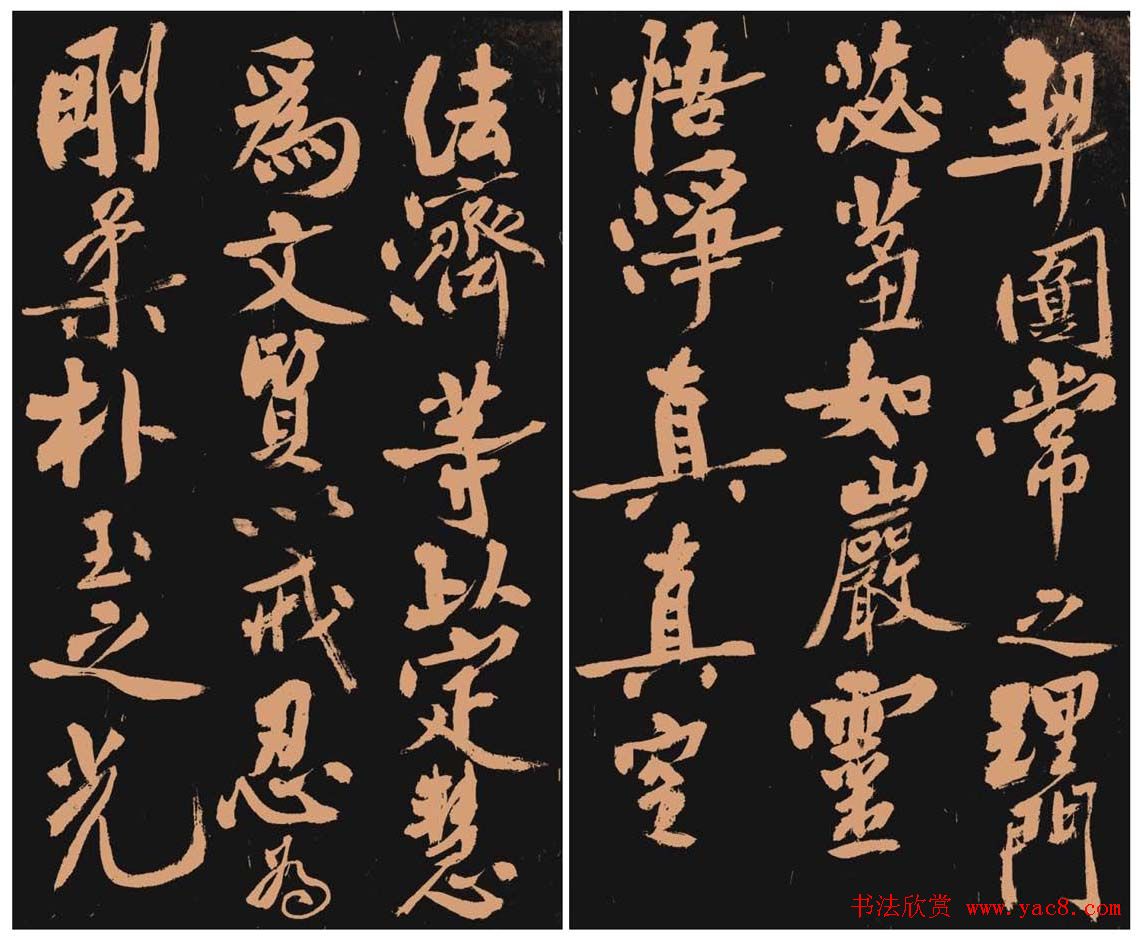 契圓常之理門
苾芻如巖靈
悟淨真真空
法濟等以定慧
爲文質以戒忍為
剛柔朴玉之光
书法欣赏 www.yac8.com